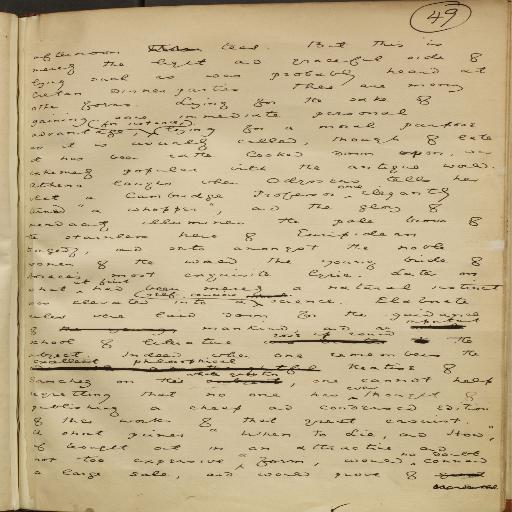 49
afternoon teas. But this is
merely the light and graceful side of
lying such as was probably heard at
Cretan dinner parties. There are many
other forms. Lying for the sake of
gaining some immediate personal
advantage, (for instance) lying for a moral purpose
as it is usually called, though of late
it has been rather looked down upon, was
extremely popular with the antique world.
Athena laughs when Odysseus tells her
what a Cambridge Professor once elegantly
termed "a whopper", and the glory of
mendacity illumines the pale brow of
the stainless hero of Euripidean
tragedy, and sets amongst the noble
women of the world the young bride of
Horace's most exquisite lyric. Later on
what at first had been merely a natural instinct
was elevated into a self-conscious science. Elaborate
rules were laid down for the guidance
of mankind and an important
school of literature the
subject. Indeed when one remembers the
excellent philosophical treatise of
Sanchez on the whole question, one cannot help
regretting that no one has ever thought of
publishing a cheap and condensed edition
of the works of that great casuist.
A short primer "When to Lie, and How",
if brought out in an attractive and
not too expensive form, would no doubt command
a large sale, and would prove of